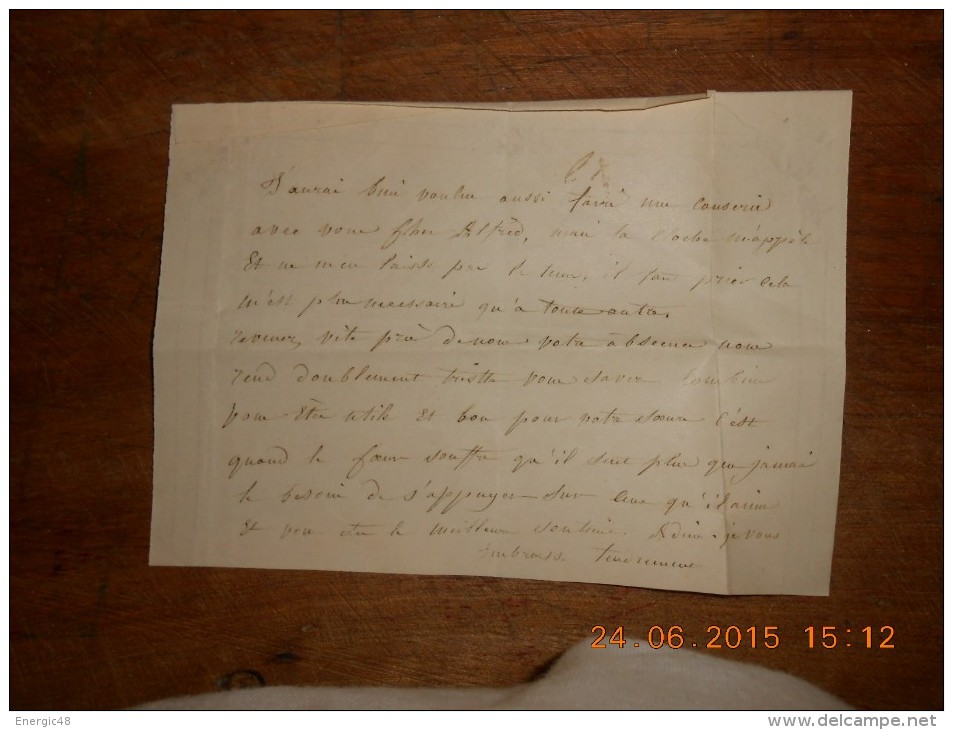 J'aurai bien voulu aussi faire une causerie
avec vous cher Alfred, mais la cloche m'appèle
Et ne me laisse pas le tems, il faut prier cela
m'est plus necessaire qu'à toute autre.
revenez, vite près de nous votre absence nous
rend doublement triste vous savez combien
vous Etes utile Et bon pour votre soeur c'est
quand le coeur souffre qu'il sent plus que jamais
le besoin de s'appuyer sur ceux qu'il aime
Et vous etes le meilleur soutien. Adieu je vous
Embrasse tendrement
24.06.2015 15:12
Energic48
www.delcampe.net